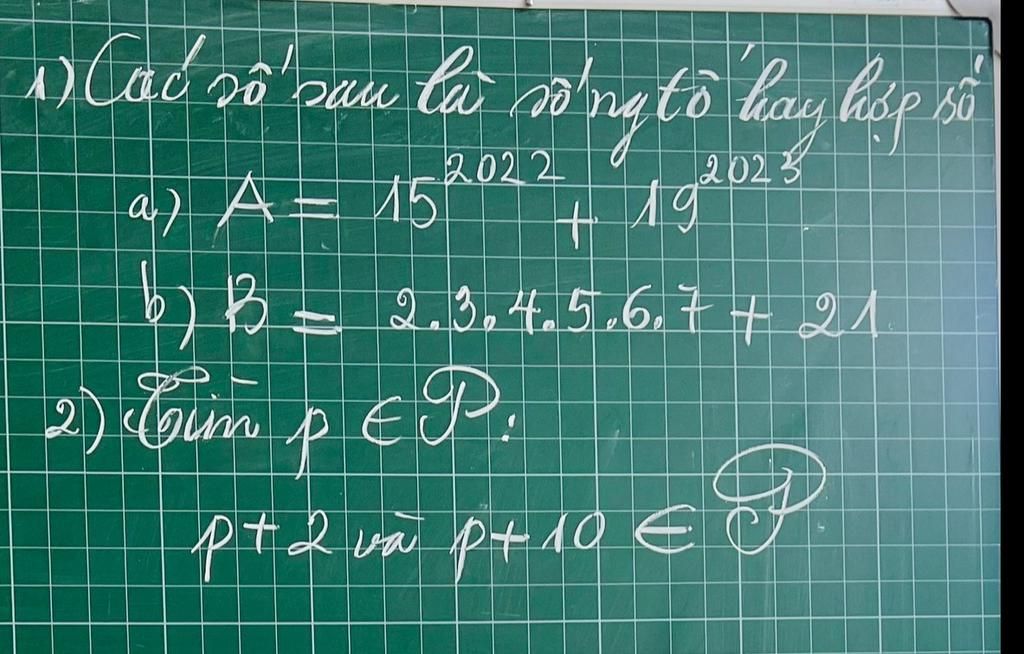 1) Các số sau là số ng tố hay hợp số
a) A = 15^2022 + 19^2023
b) B = 2.3.4.5.6.7 + 21
2) Tìm p ∈ P:
p+2 và p+10 ∈ P